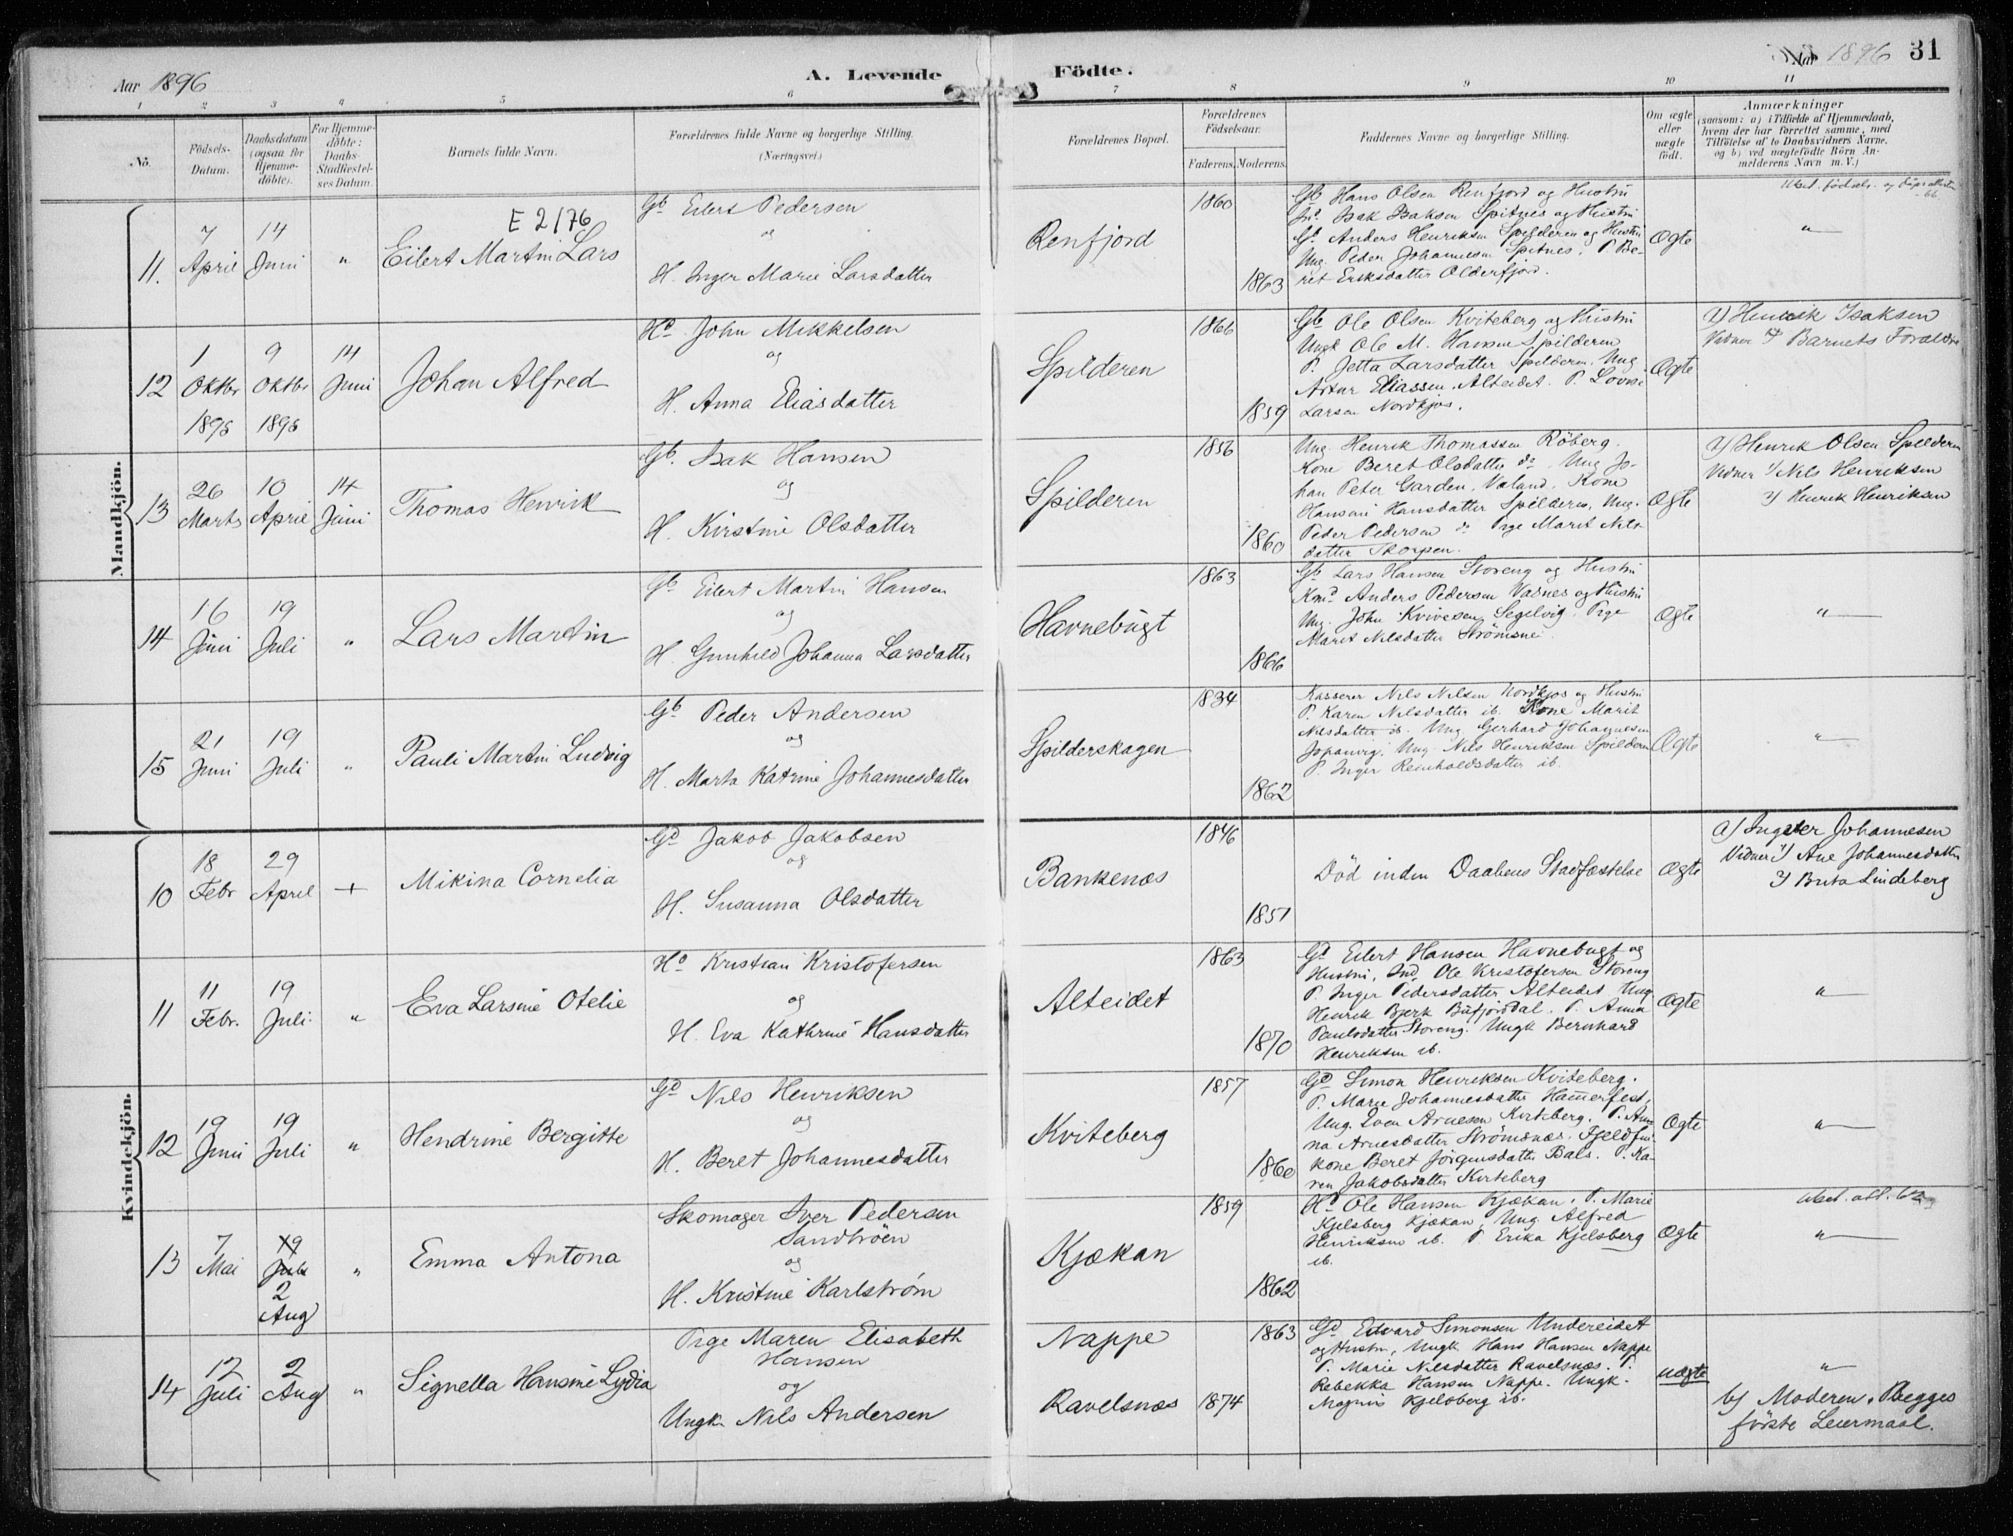 Aar 1896
A. Levende
Födte.
Aar 1896
31
1 2 3 4 5 6 7 8 9 10 11
No.
Födsels-
Datum.
Daabsdatum
(ogsaa for
Hjemme-
döbte).
For Hjemme-
döbte:
Daabs-
Stadfæstel-
ses Datum.
Barnets fulde Navn.
Forældrenes fulde Navne og borgerlige Stilling.
(Næringsvei.)
Forældrenes Bopæl.
Forældrenes
Födselsaar.
Faderens. Moderens.
Faddernes Navne og borgerlige Stilling.
Om ægte
eller
uægte
födt.
Anmærkninger
(saasom: a) i Tilfælde af Hjemmedaab,
hvem der har forrettet samme, med
Tilföielse af to Daabsvidners Navne,
og b) ved uægtefödte Börn An-
melderens Navn m. V.)
Mandkjön.
11.
7
April
14
Juni
"
E 2/76
Eilert Martin Lars
Gb. Eilert Pedersen
og
H. Inger Marie Larsdatter
Renfjord
1860
1863
Gb Hans Olsen Renfjord og Hustru
Isak Isaksen Spitnes og Hustru
Gb. Anders Henriksen Spilderen og Hustru
Ung. Peder Johannesen Spitnes. P. Be-
ret Eriksdatter Olderfjord.
Ægte
Utst. födsels. og dåpsattester
66
"
12
1
Oktbr
1895
9
Oktbr
1895
14
Juni
Johan Alfred
Hd John Mikkelsen
og
H. Anna Eliasdatter
Spilderen
1866
1859
Gb Ole Olsen Kviteberg og Hustru
Ungk Ole M. Hansen Spilderen
P. Jetta Larsdatter Spilderen. Ung
Artur Eliassen Alteidet. P. Lovise
Larsen Nordkjos.
Ægte
a) Henrik Isaksen
Vidner Barnets Forældre
13
26
Marts
10
April
14
Juni
Thomas Henrik
Gb. Isak Hansen
og
H. Kirstine Olsdatter
Spilderen
1856
1860
Ung. Henrik Thomassen Röberg.
Kone Beret Olsdatter do. Ung Jo-
han Peter Garden, Valand. Kone
Hansine Hansdatter Spilderen, Ung.
Peder Pedersen do Pige Marit Nils-
datter Thorpen.
Ægte
a) Henrik Olsen Spilderen
Vidner 1) Nils Henriksen
2) Henrik Henriksen
14
16
Juni
19
Juli
"
Lars Martin
Gb Eilert Martin Hansen
og
H. Gunhild Johanna Larsdatter
Havnebugt
1863
1866
Gb. Lars Hansen Storeng og Hustru
Kmd Anders Pedersen Vasnes og Hustru
Ung. John Kvivesen Segelvig. Pige
Marit Nilsdatter Strömsnes.
Ægte
"
15
21
Juni
19
Juli
"
Pauli Martin Ludvig
Gb Peder Andersen
og
H. Marta Katrine Johannesdatter
Spilderskagen
1834
1862
Kasserer Nils Nilsen Nordkjos og Hustru
P. Karen Nilsdatter ib. Kone Marit
Nilsdatter ib. Ung Gerhard Johannesen
Ung. Nils Henriksen Spilderen
P. Inger Reinholdsdatter ib.
Ægte
"
Kvindekjön.
10
18
Febr
29
April
+
Mikina Cornelia
Gd Jakob Jakobsen
og
H. Susanna Olsdatter
Bankenæs
1846
1851
Död inden Daabens Stadfæstelse
Ægte
a) Johannesen
Vidner 1) Ane Johannesdatter
2) Brita Lindeberg
11
11
Febr.
19
Juli
"
Eva Larsine Otelie
Hd Kristian Kristofersen
og
H. Eva Kathrine Hansdatter
Alteidet
1863
1870
Gd Eilert Hansen Havnebugt og
Hustru, Ind. Ole Kristofersen Storeng
P. Inger Pedersdatter Alteidet Ung
Henrik Bjerk Bufjorddal. P. Anna
Paulsdatter Storeng. Ungk Bernhard
Henriksen ib.
Ægte
"
12
19
Juni
19
Juli
"
Hendrine Bergitte
Gd Nils Henriksen
og
H. Beret Johannesdatter
Kviteberg
1857
1860
Gd Simon Henriksen Kviteberg.
P. Marie Johannesdatter Hammerfest,
Ung. Iver Arnesen Kviteberg. P. An-
na Arnesdatter Strömsnæs. Fjeldfin-
kone Beret Jörgensdatter Bals. P. Ka-
ren Jakobsdatter Kviteberg
Ægte
"
13
7
Mai
19
Juli
2
Aug
"
Emma Antona
Skomager Iver Pedersen
Sandbröen
og
H. Kristine Karlström
Kjækan
1859
1862
Hd Ole Hansen Kjækan. P. Marie
Kjelsberg Kjækan, Ung. Alfred
Henriksen ib. P Erika Kjelsberg
ib.
Ægte
Utst. att.
"
14
12
Juli
2
Aug
"
Signella Hansine Lydia
Pige Maren Elisabeth
Hansen
og
Ungk. Nils Andersen
Nappe
Ravelsnæs
1863
1874
Gd Edvard Simonsen Undereidet
og Hustru, Ungk Hans Hansen Nappe
P. Marie Nilsdatter Ravelsnæs. P.
Rebekka Hansen Nappe. Ungk.
Magnus Kjelsberg ib.
uægte
"
b) Moderen. Begges
förste Leiermaal.